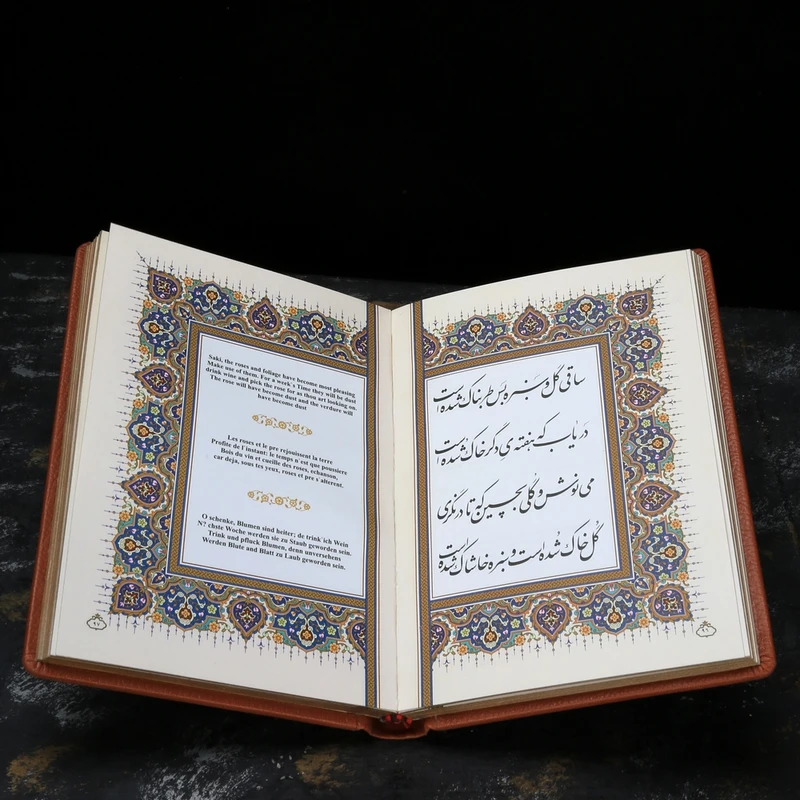 Saki, the roses and foliage have become most pleasing
Make use of them. For a week's Time they will be dost
drink wine and pick the rose for as thou art looking on.
The rose will have become dust and the verdure will
have become dust
Les roses et le pre rejouissent la terre
Profite de l'instant: le temps n'est que poussiere
Bois du vin et cueille des roses, echanson,
car deja, sous tes yeux, roses et pre s'alterent.
O schenke, Blumen sind heiter; de trink'ich Wein
N? chste Woche werden sie zu Staub geworden sein.
Trink und pfluck Blumen, denn unversehens
Werden Blute and Blatt zu Laub geworden sein.
ساقی گل و سبزه بس طربناک شده است
دریاب که هفته‌ی دگر خاک شده است
می نوش و گلی بچین که تا درنگری
گل خاک شده است و سبزه خاشاک شده است